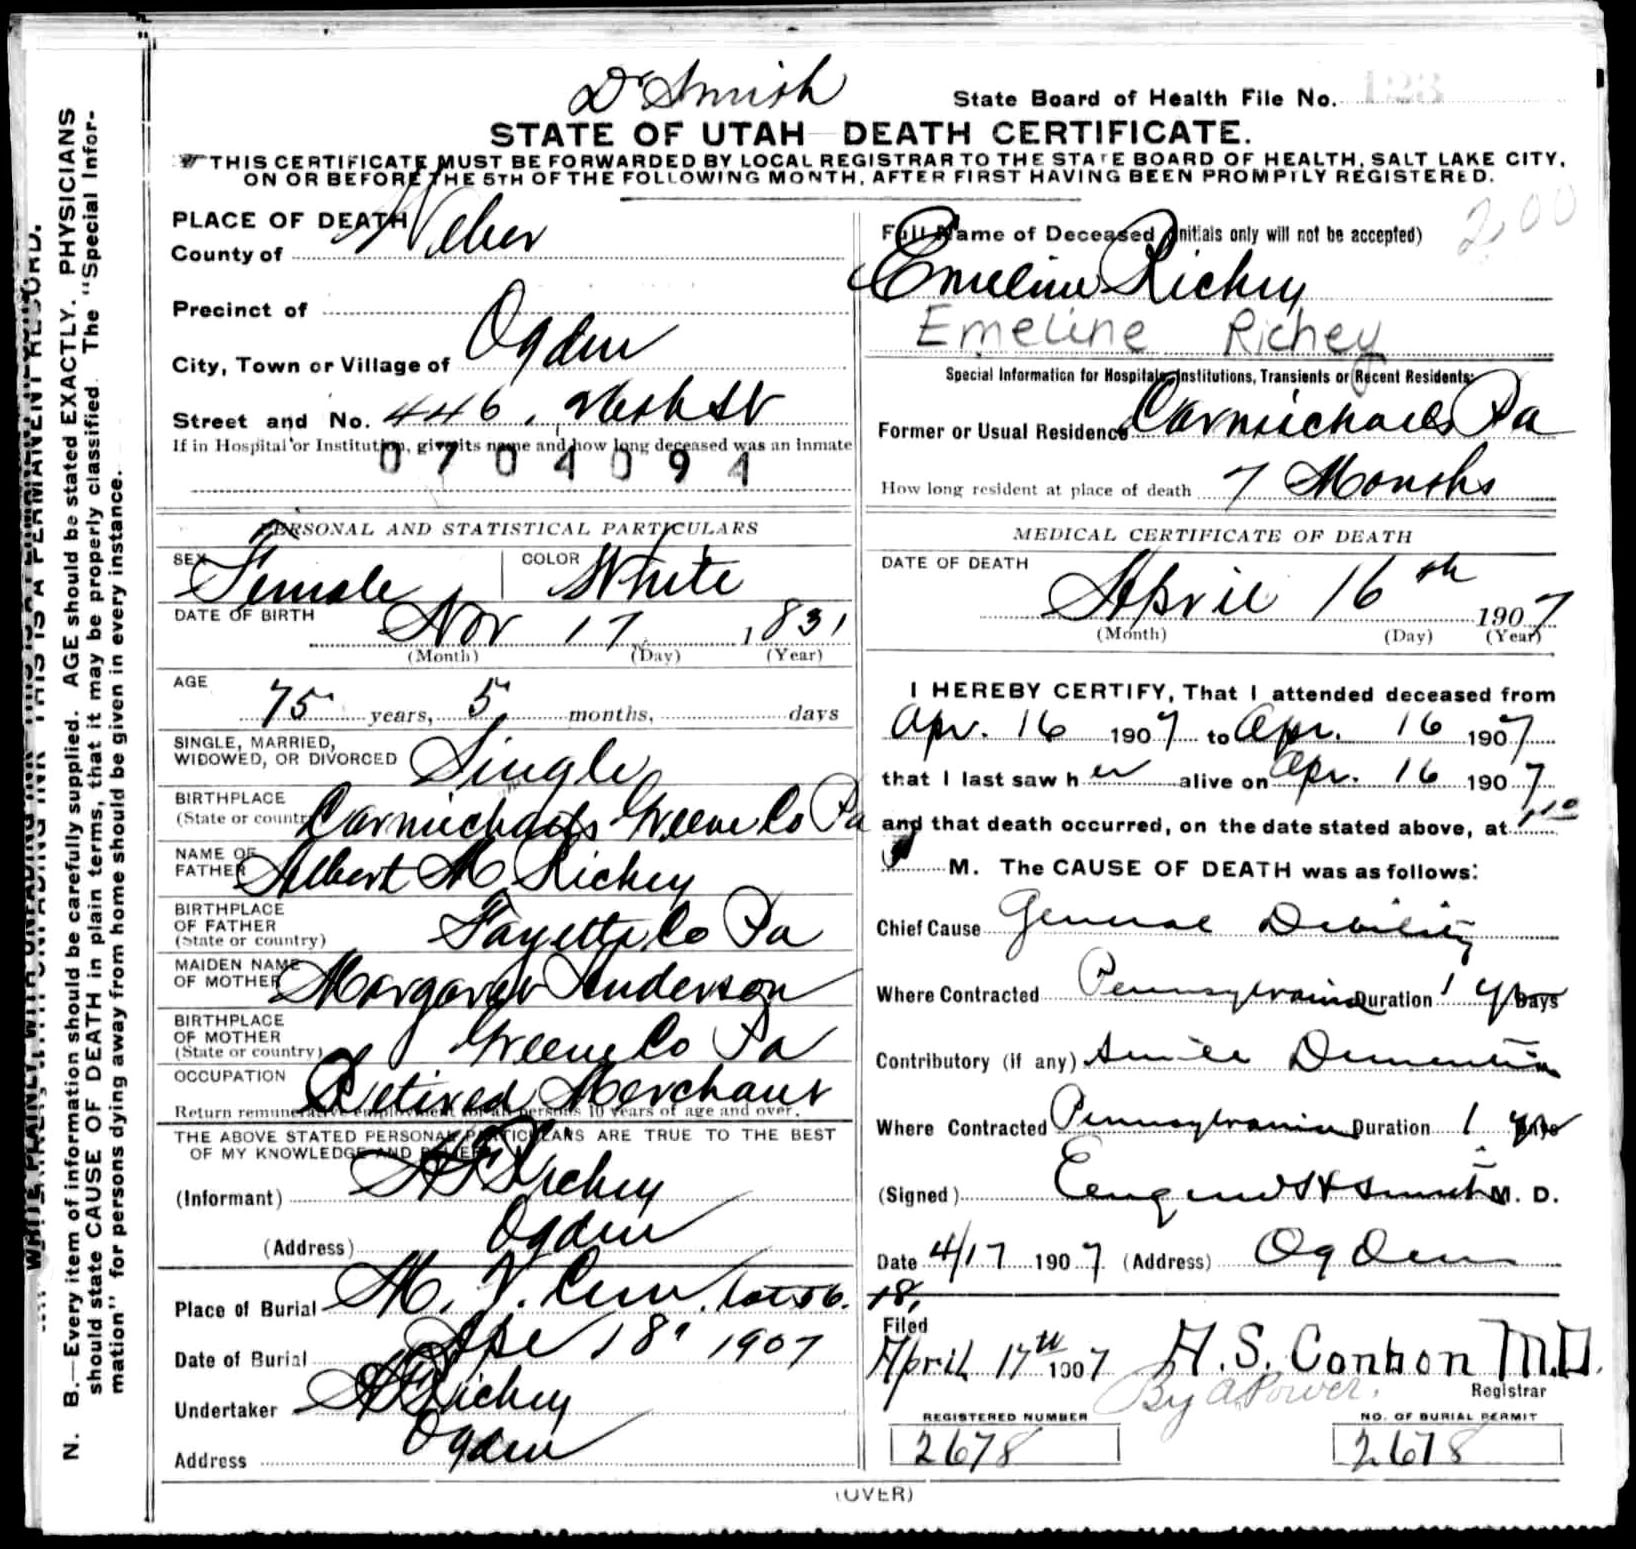 Dr Smith
State Board of Health File No. 123
STATE OF UTAH—DEATH CERTIFICATE.
THIS CERTIFICATE MUST BE FORWARDED BY LOCAL REGISTRAR TO THE STATE BOARD OF HEALTH, SALT LAKE CITY,
ON OR BEFORE THE 5TH OF THE FOLLOWING MONTH, AFTER FIRST HAVING BEEN PROMPTLY REGISTERED.
PLACE OF DEATH
County of Weber
Precinct of
City, Town or Village of Ogden
Street and No. 446,
If in Hospital or Institution, give its name and how long deceased was an inmate
0704094
PERSONAL AND STATISTICAL PARTICULARS
SEX Female COLOR White
DATE OF BIRTH Nov 17 1831
(Month) (Day) (Year)
AGE
75 years, 5 months, days
SINGLE, MARRIED,
WIDOWED, OR DIVORCED Single
BIRTHPLACE
(State or country) Carmichaels Greene Co Pa
NAME OF
FATHER Albert M Richey
BIRTHPLACE
OF FATHER
(State or country) Fayette Co Pa
MAIDEN NAME
OF MOTHER Margaret Anderson
BIRTHPLACE
OF MOTHER
(State or country) Greene Co Pa
OCCUPATION Retired Merchant
Return remunerative employment for all persons 10 years of age and over.
THE ABOVE STATED PERSONAL PARTICULARS ARE TRUE TO THE BEST
OF MY KNOWLEDGE AND BELIEF
(Informant) Richey
(Address) Ogden
Place of Burial M. V. Cem. Lot 56.
Date of Burial Apr 18" 1907
Undertaker Richey
Address Ogden
2,00
Full Name of Deceased (Initials only will not be accepted)
Emeline Richey
Emeline Richey
Special Information for Hospitals, Institutions, Transients or Recent Residents:
Former or Usual Residence Carmichaels Pa
How long resident at place of death 7 Months
MEDICAL CERTIFICATE OF DEATH
DATE OF DEATH
April 16th 1907
(Month) (Day) (Year)
I HEREBY CERTIFY, That I attended deceased from
Apr. 16 1907 to Apr. 16 1907
that I last saw her alive on Apr. 16 1907
and that death occurred, on the date stated above, at
M. The CAUSE OF DEATH was as follows:
Chief Cause General Debility
Where Contracted Pennsylvania Duration 1 yr Days
Contributory (if any) Senile Dementia
Where Contracted Pennsylvania Duration 1 yr
(Signed) Eugene H Smith M. D.
Date 4/17 1907 (Address) Ogden
18,
Filed
April 17th 1907 H. S. Conbon M.D.
By A Power.
Registrar
REGISTERED NUMBER
2678
NO. OF BURIAL PERMIT
2678
(OVER)
N. B.—Every item of information should be carefully supplied. AGE should be stated EXACTLY. PHYSICIANS
should state CAUSE OF DEATH in plain terms, that it may be properly classified. The "Special Infor-
mation" for persons dying away from home should be given in every instance.
WRITE PLAINLY WITH UNFADING INK THIS IS A PERMANENT RECORD.